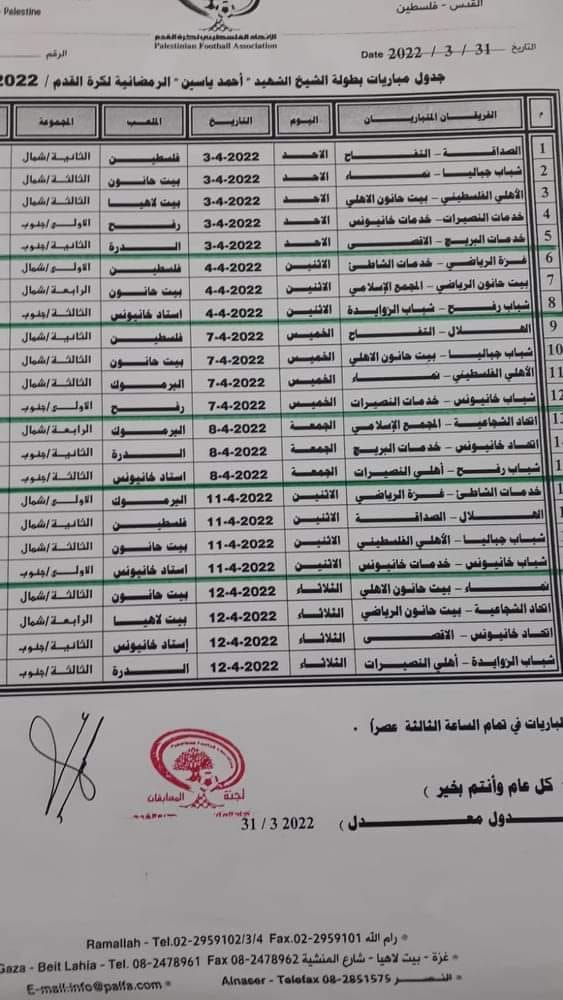 - Palestine
القدس - فلسطين
الإتحاد الفلسطيني لكرة القدم
Palestinian Football Association
الرقم
Date 2022 / 3 / 31 التاريخ
جدول مباريات بطولة الشيخ الشهيد "أحمد ياسين" الرمضانية لكرة القدم / 2022
م الفريقان المتباريان اليوم التاريخ الملعب المجموعة
1 الصداقة - التفاح الاحد 3-4-2022 فلسطين الثانية/شمال
2 شباب جباليا - نماء الاحد 3-4-2022 بيت حانون الثالثة/شمال
3 الأهلي الفلسطيني - بيت حانون الاهلي الاحد 3-4-2022 بيت لاهيا الثالثة/شمال
4 خدمات النصيرات - خدمات خانيونس الاحد 3-4-2022 رفح الاولى/جنوب
5 خدمات البريج - الاقصى الاحد 3-4-2022 الدرة الثانية/جنوب
6 غزة الرياضي - خدمات الشاطئ الاثنين 4-4-2022 فلسطين الاولى/شمال
7 بيت حانون الرياضي - المجمع الإسلامي الاثنين 4-4-2022 بيت حانون الرابعة/شمال
8 شباب رفح - شباب الزوايدة الاثنين 4-4-2022 استاد خانيونس الثالثة/جنوب
9 الهلال - التفاح الخميس 7-4-2022 فلسطين الثانية/شمال
10 شباب جباليا - بيت حانون الاهلي الخميس 7-4-2022 بيت حانون الثالثة/شمال
11 الأهلي الفلسطيني - نماء الخميس 7-4-2022 اليرموك الثالثة/شمال
12 شباب خانيونس - خدمات النصيرات الخميس 7-4-2022 رفح الاولى/جنوب
1 اتحاد الشجاعية - المجمع الإسلامي الجمعة 8-4-2022 اليرموك الرابعة/شمال
1 اتحاد خانيونس - خدمات البريج الجمعة 8-4-2022 الدرة الثانية/جنوب
1 شباب رفح - أهلي النصيرات الجمعة 8-4-2022 استاد خانيونس الثالثة/جنوب
1 خدمات الشاطئ - غزة الرياضي الاثنين 11-4-2022 اليرموك الاولى/شمال
1 الهلال - الصداقة الاثنين 11-4-2022 فلسطين الثانية/شمال
شباب جباليا - الأهلي الفلسطيني الاثنين 11-4-2022 بيت حانون الثالثة/شمال
شباب خانيونس - خدمات خانيونس الاثنين 11-4-2022 استاد خانيونس الاولى/جنوب
نماء - بيت حانون الاهلي الثلاثاء 12-4-2022 بيت حانون الثالثة/شمال
اتحاد الشجاعية - بيت حانون الرياضي الثلاثاء 12-4-2022 بيت لاهيا الرابعة/شمال
اتحاد خانيونس - الاقصى الثلاثاء 12-4-2022 إستاد خانيونس الثانية/جنوب
شباب الزوايدة - أهلي النصيرات الثلاثاء 12-4-2022 الدرة الثالثة/جنوب
لمباريات في تمام الساعة الثالثة عصرا) .
كل عام وأنتم بخير )
لجنة المسابقات
دول معدل ) 31 / 3 2022
Ramallah - Tel.02-2959102/3/4 Fax.02-2959101 رام الله *
Gaza - Beit Lahia - Tel. 08-2478961 Fax 08-2478962 غزة - بيت لاهيا - شارع المنشية *
E-mail:info@palfa.com * Alnaser - Telefax 08-2851575 النصر *